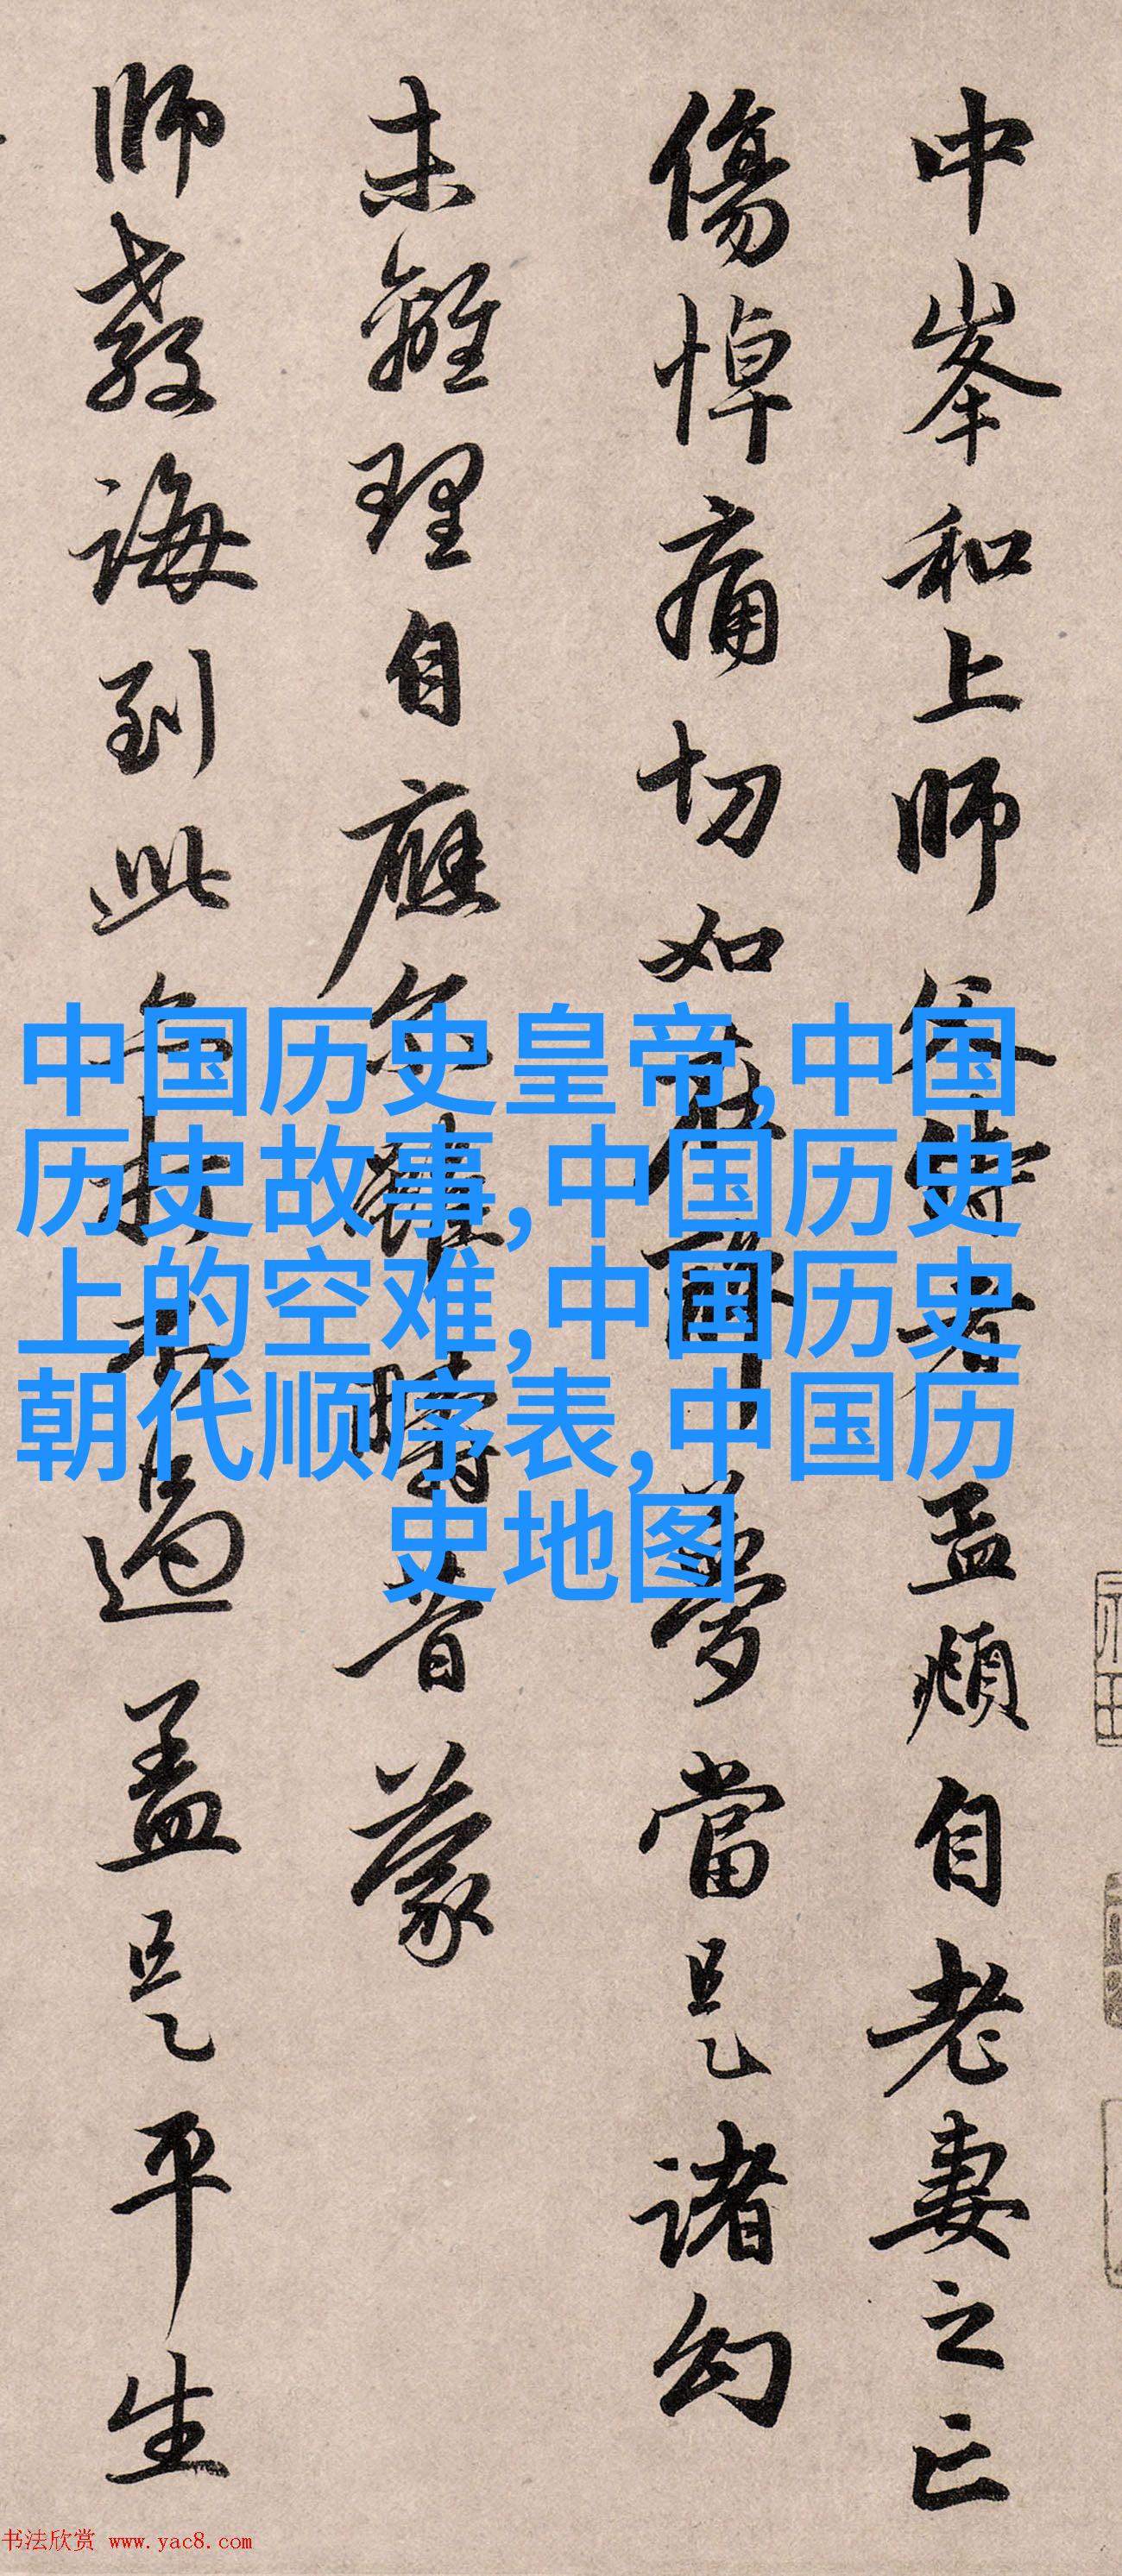 中峯和上師父侍者孟頫自老妻之亡
傷悼痛切如在醉夢當是諸幻
未離理自應尔雖疇昔蒙
師教誨到此亦打不過蓋是平生
中国历史皇帝,中国
历史故事,中国历史
上的空难,中国历史
朝代顺序表,中国历
史地图
书法欣赏 www.yac8.com